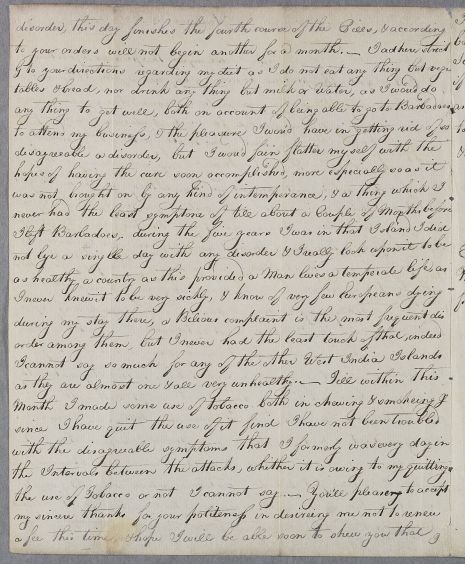 disorder, this day finishes the fourth course of the Pills, & according
to your orders will not begin another for a month. — I adhere strict
ly to your directions regarding my diet as I do not eat any thing but vege
tables & bread, nor drink any thing but milk or Water, as I would do
any thing to get well, both on account of being able to go to Barbadoes
to attend my business, & the pleasure I would have in getting rid of so
disagreeable a disorder, but I woud fain flatter myself with the
hopes of having the cure soon accomplished, more especially so as it
was not brought on by any kind of intemperance, & a thing which I
never had the least symptoms of till about a Couple of Months before
I left Barbadoes. during the five years I was in that Island I did
not lye a single day with any disorder & I really look upon it to be
as healthy a country as this provided a Man lives a temperate life, as
I never knew it to be very sickly, & I know of very few Europeans dying
during my stay there, a Bilious complaint is the most frequent dis
order among them, but I never had the least touch of that, indeed
I cannot say so much for any of the other West India Islands
as they are almost one & all very unhealthy. — Till within this
Month I made some use of tobacco both in chewing & smokeing &
since I have quit the use of it find I have not been troubled
with the disagreeable symptoms that I formerly was every day in
the Intervals between the attacks, whether it is owing to my quitting
the use of Tobacco or not I cannot say. — You'll please to accept
my sincere thanks for your politeness in desireing me not to renew
a fee this time, & hope I will be able soon to shew you that